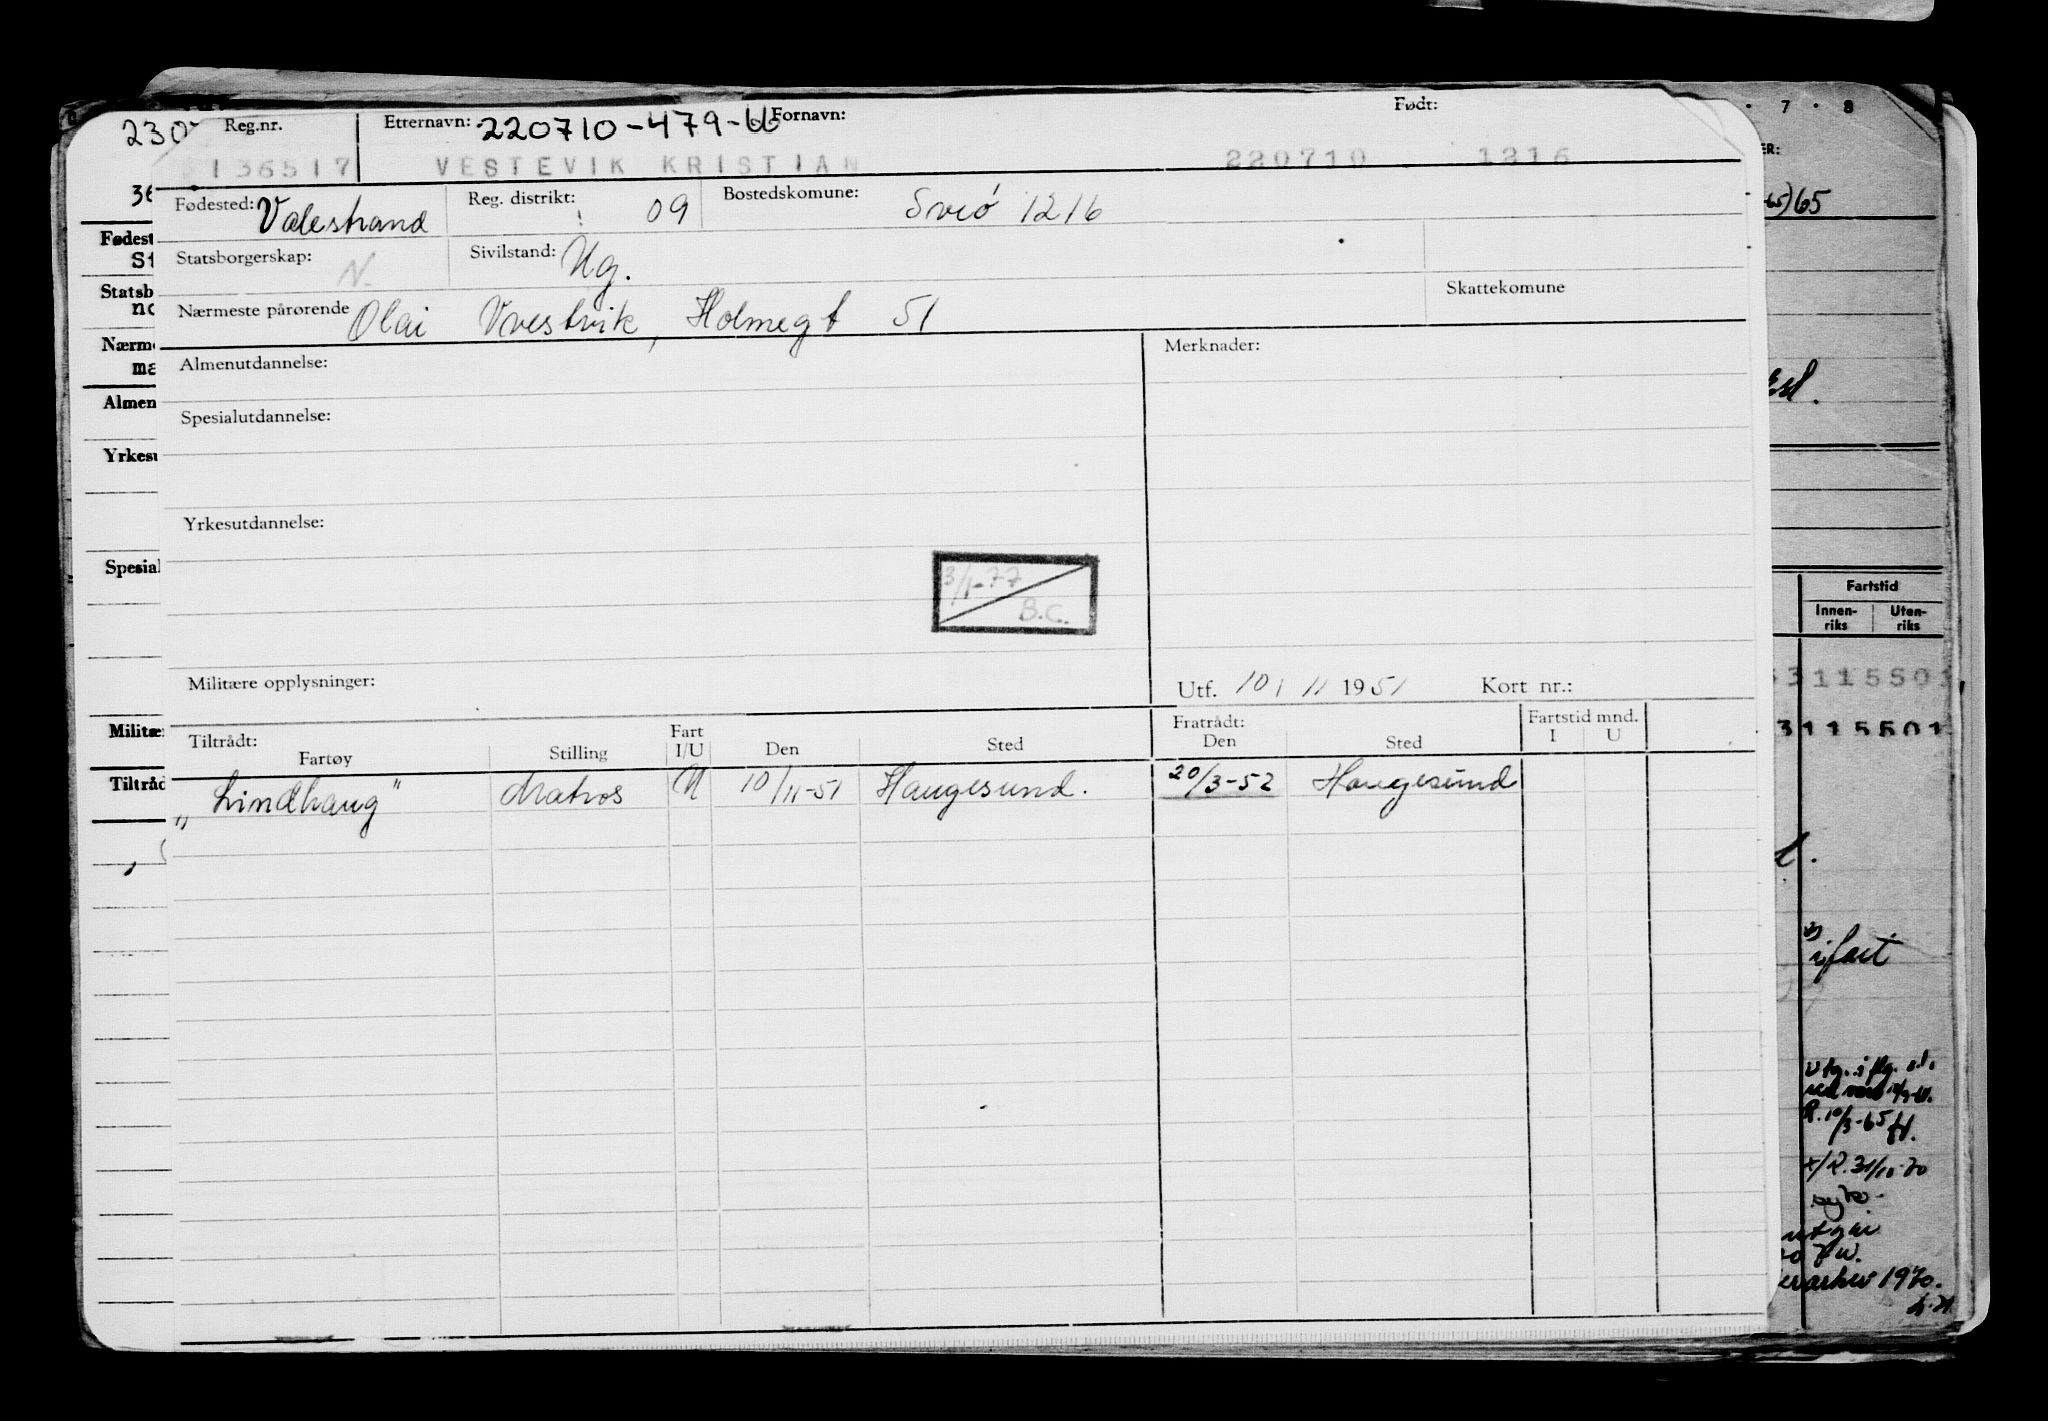 230
Reg.nr. Etternavn: 220710-479- Fornavn: Født:
136517 VESTEVIK KRISTIAN 220710 1216
Fødested: Valestrand Reg. distrikt: 09 Bostedskomune: Sveio 1216
Statsborgerskap: N. Sivilstand: Ug.
Nærmeste pårørende Olai Vvestvik, Holmegt 51 Skattekomune
Almenutdannelse: Merknader:
Spesialutdannelse:
Yrkesutdannelse:
3/1-77
B.C.
Militære opplysninger: Utf. 10 / 11 1951 Kort nr.:
Tiltrådt: Fart Fratrådt: Fartstid mnd.
Fartøy Stilling I/U Den Sted Den Sted I U
"Lindhaug" Matros U 10/11-51 Haugesund. 20/3-52 Haugesund
36
Fødest
St
Statsb
no
Nærme
ma
Almen
Yrkesu
Spesial
Militær
Tiltråd
• 7 • 8
ER:
65
Fartstid
Innen-
riks
Uten-
riks
3115501
3115501
i fart
R. 10/3-65
1970.